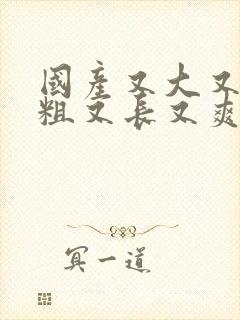 國產又大又
粗又長又爽
冥一道